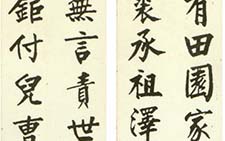 有田園家
裘承祖澤
無言責世
鉅付兒曹